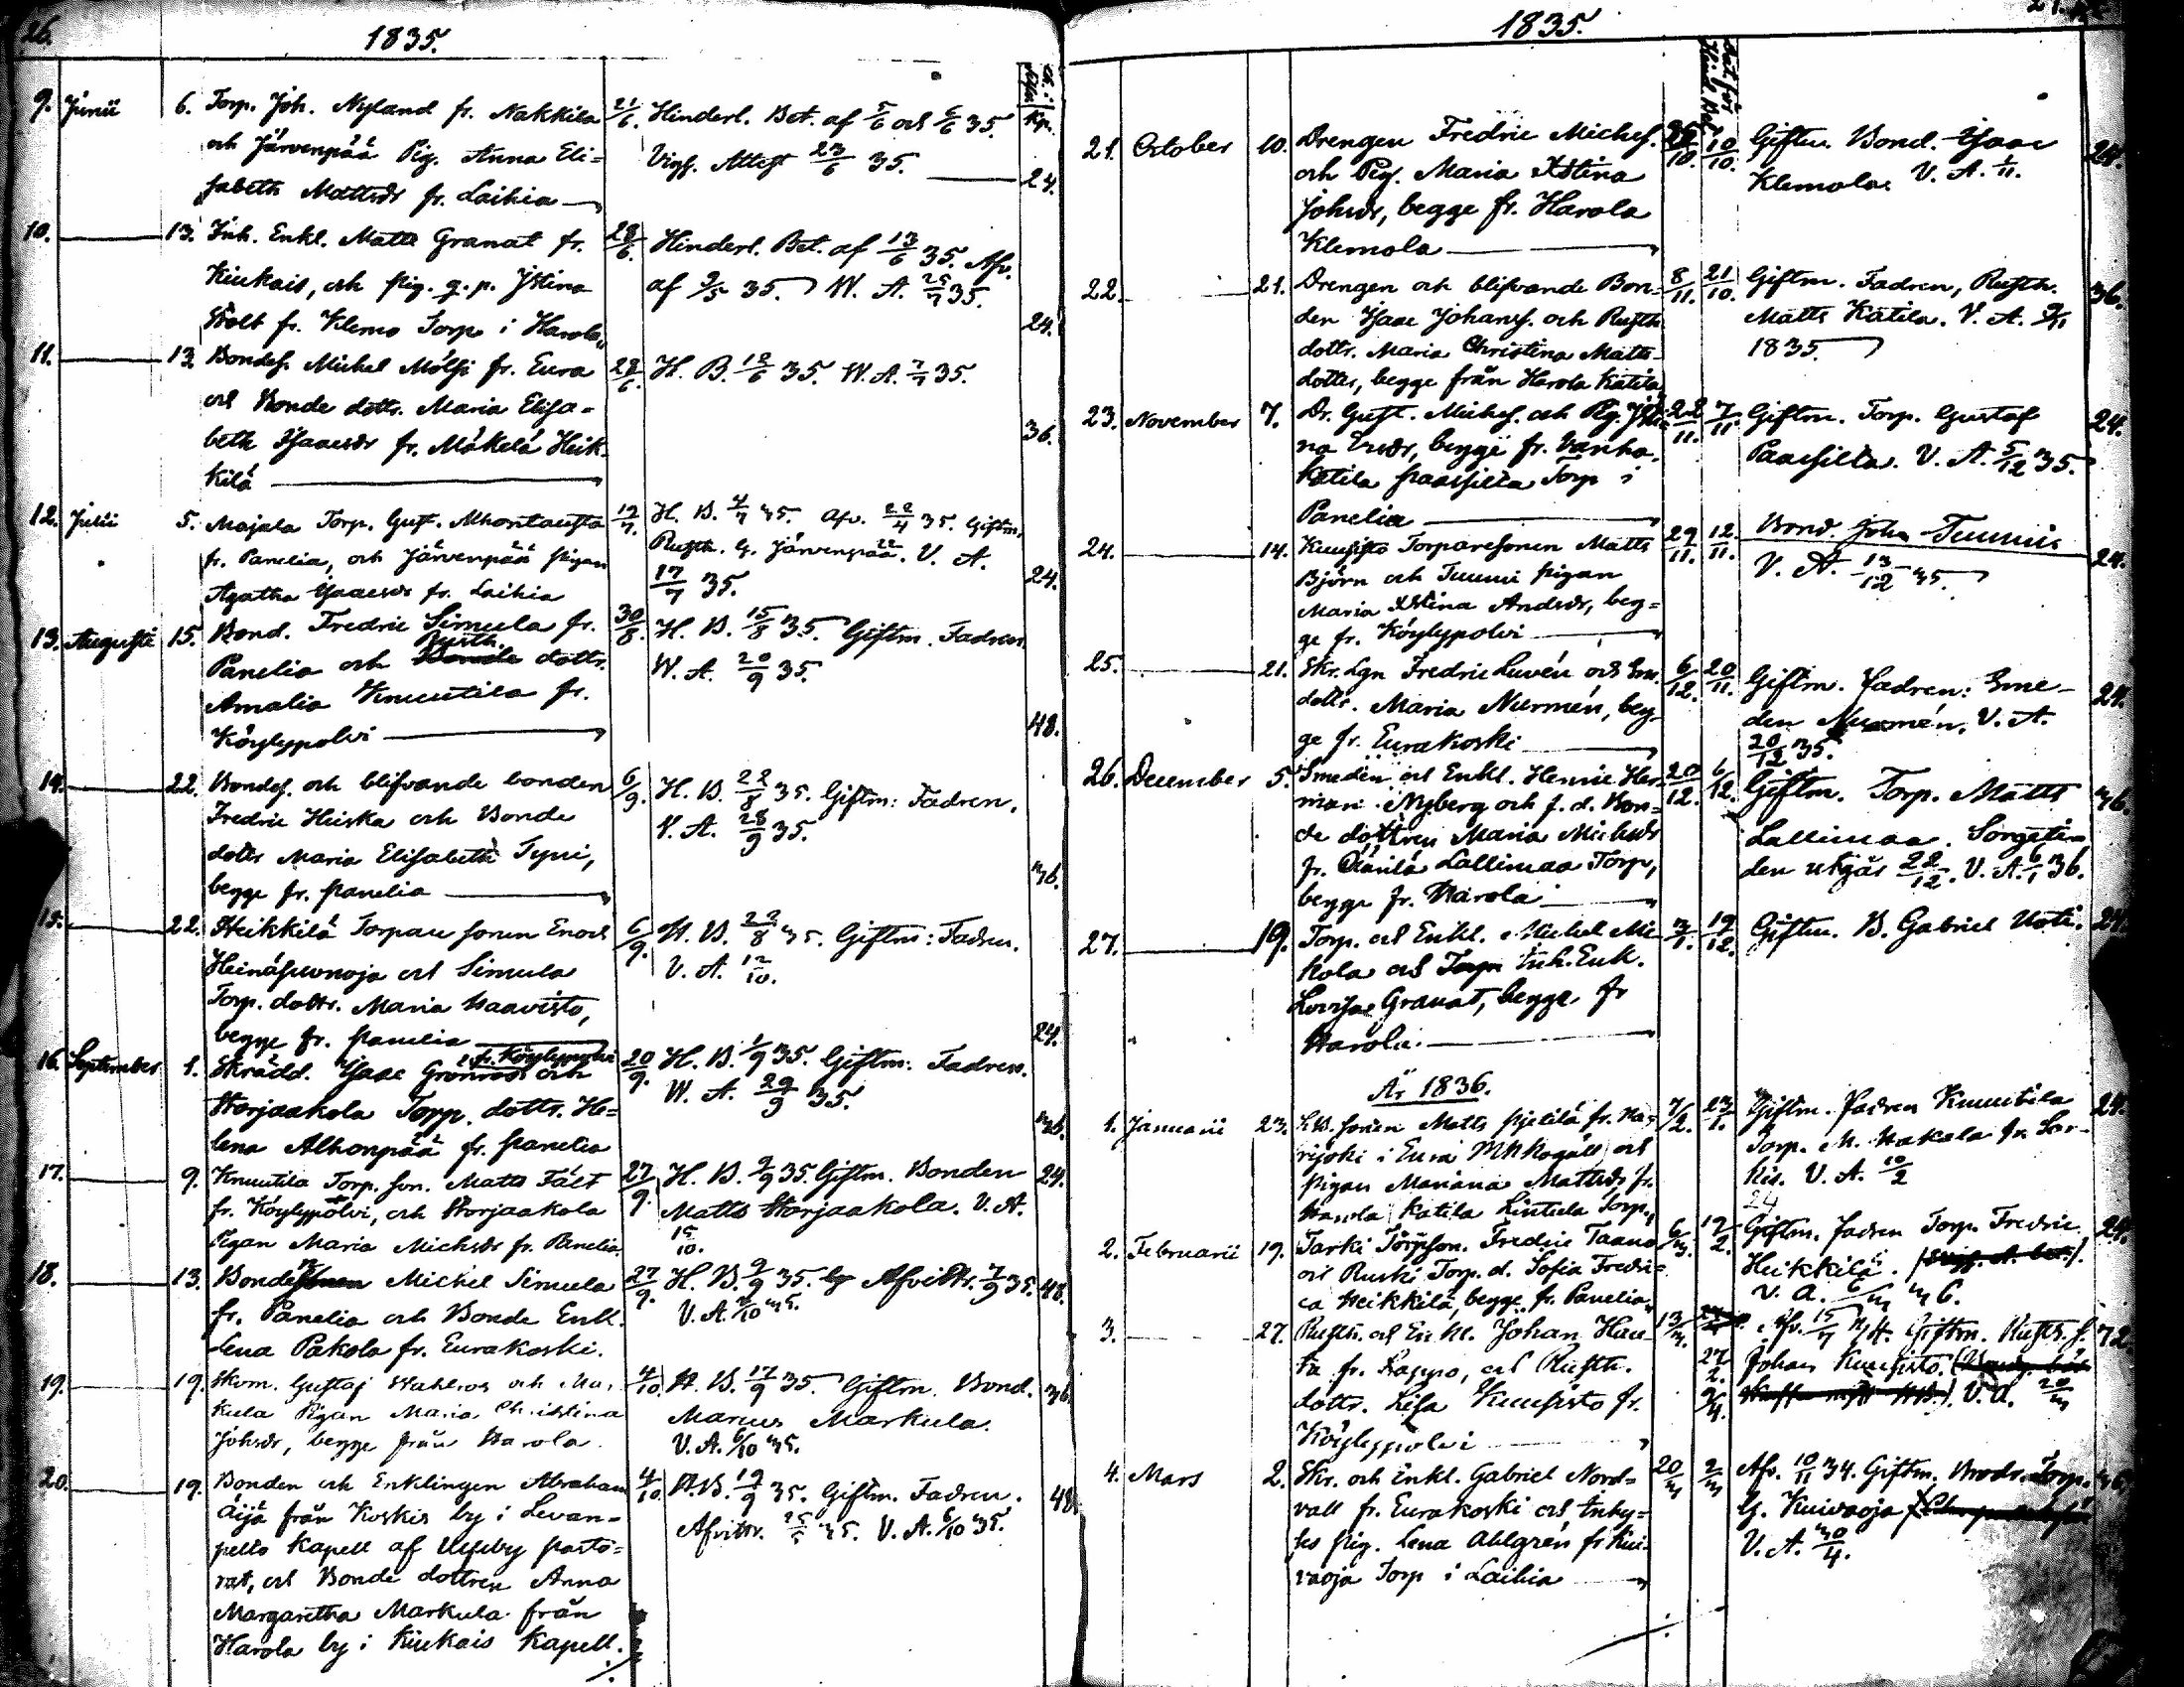 26.
1835.
Kp.
9. Junii 6. Torp. Joh. Nyland fr. Nakkila 21/6. Hinderl. Bet. af 5/6 och 6/6 35.
och Järvenpää Pig. Anna Eli= Vigs. Attest 23/6 35. 24.
sabeth Mattsdr fr. Laihia
10. 13. Inh. Enkl. Matts Granat fr. 28/6. Hinderl. Bet. af 13/6 35. Afv.
Kiukais, och pig. q. p. af 9/5 35. W. A. 25/7 35.
fr. Klemo Torp i Harola 24.
11. 13. Bondes. Michel Mölsi fr. Eura 28/6. H. B. 12/6 35. W. A. 7/7 35.
och Bonde dottr. Maria Elisa=
beth Isaacsdr fr. Mäkelä Heik= 36.
kilä
12. Julii 5. Majala Torp. Gust. Alhontausta 12/7. H. B. 4/7 35. Afv. 22/4 35. Giftm.
fr. Panelia, och Järvenpää pigan Rusth. G. Järvenpää. V. A.
Agatha Isaacsdr fr. Laihia 17/7 35. 24.
13. Augusti 15. Bond. Fredric Simula fr. 30/8. H. B. 15/8 35. Giftm. Fadren
Rusth.
Panelia och Bonde dottr. W. A. 20/9 35.
Amalia Knuutila fr.
Köylypolvi 48.
14. 22. Bondes. och blifvande bonden 6/9. H. B. 22/8 35. Giftm: Fadren.
Fredric Heiska och Bonde V. A. 28/9 35.
dottr Maria Elisabeth Typi,
begge fr. Panelia 36.
15. 22. Heikkilä Torpare sonen Enoch 6/9. H. B. 22/8 35. Giftm: Fadren.
Heinäsuonoja och Simula V. A. 12/10.
Torp. dottr. Maria Haavisto,
begge fr. Panelia 24.
fr. Köylypolvi
16. September 1. Skrädd. Isaac Grönroos och 20/9. H. B. 1/9 35. Giftm: Fadren.
Storjaakola Torp. dottr. He= W. A. 29/9 35.
lena Alhonpää fr. Panelia 36.
17. 9. Knuutila Torp. son. Matts Fält 27/9. H. B. 9/9 35. Giftm. Bonden 24.
fr. Köylypolvi, och Storjaakola Matts Storjaakola. V. A.
Pigan Maria Michsdr fr. Panelia. 15/10.
18. 13. Bonde Michel Simula 27/9. H. B. 9/9 35. Afvittr. 7/9 35. 48.
fr. Panelia och Bonde Enk. V. A. /10 35.
Lena Pakola fr. Eurakoski.
19. 19. Skom. Gustaf Wahlroos och Ma. 4/10 H. B. 17/9 35. Giftm. Bond. 36.
kula Pigan Maria Christina Marcus Markula.
Johsdr, begge från Harola V. A. 6/10 35.
20. 19. Bonden och Enklingen Abraham 4/10. H. B. 19/9 35. Giftm. Fadren. 48.
Äijä från Koskis by i Levan= Afvittr. 35. V. A. 6/10 35.
pello Kapell af Ulfsby pasto=
rat, och Bonde dottren Anna
Margaretha Markula från
Harola by i Kiukais Kapell.
1835.
21. October 10. Drengen Fredric Michels. 25/10. 10/10. Giftm. Bond. Isaac 24.
och Pig. Maria Xstina Klemola. V. A. 1/11.
Johsdr, begge fr. Harola
Klemola
22. 21. Drengen och blifvande Bon= 8/11. 21/10. Giftm. Fadren, Rusth. 36.
den Isaac Johans. och Rusth. Matts Katila. V. A. 9/11
dottr. Maria Christina Matts= 1835.
dotter, begge från Harola Katila
23. November 7. Dr. Gust. Michels. och Pig. 22/11. 7/11. Giftm. Torp. Gustaf 24.
na Ersdr, begge fr. Vanha. Paassilla. V. A. 5/12 35.
Katila Paassilla Torp i
Panelia
24. 14. Kuusisto Torparesonen Matts 29/11. 12/11. Bond. Joh. Tuumi
Björn och Tuumi pigan V. A. 13/12 35. 24.
Maria Xstina Andsdr, beg=
ge fr. Köylypolvi
25. 21. Skr. Lgn Fredric Luvén och Sm. 6/12. 20/11. Giftm. Fadren: Sme= 24.
dottr. Maria Nurmén, beg= den Nurmén. V. A.
ge fr. Eurakoski 20/12 35.
26. December 5. Smeden och Enkl. Henric Her= 20/12. 6/12. Giftm. Torp. Matts 36.
man Nyberg och f. d. Bon= Lallimaa. Sorgeti=
de dottren Maria Michsdr den utgår 22/12. V. A. 6/1 36.
fr. Lallimaa Torp,
begge fr. Harola
27. 19. Torp. och Enkl. Michel Mi= 3/1. 19/12. Giftm. B. Gabriel Uoti. 24.
kola och Torpr Inh. Enk.
Lovisa Granat, begge fr
Harola.
År 1836.
1. Januarii 23. sonen Matts Pjetilä fr. Na= 7/2. 23/1. Giftm. Fadren Knuutila 24.
rijoki i Eura och Torp. M. Makela fr. Sor=
pigan Mariana Mattsdr fr. kis. V. A. 10/2
Harola Katila Lintula Torp. 24
2. Februarii 19. Tarki Torpson. Fredric Taano 6/3. 19/2. Giftm. Fadren Torp. Fredric 24.
och Ruski Torp. d. Sofia Fredri= Heikkilä.
ca Heikkilä, begge fr. Panelia V. A. 6/3 36.
3. 27. Rusth. och Enkl. Johan Hau= 13/3. Afv. 15/ Giftm. Rusth. f. 72.
ta fr. Kappo, och Rusth. 27/2. Johan Kuusisto.
dottr. Lisa Kuusisto fr. 9/4. V. A. 20/3
Köylypolvi
4. Mars 2. Skr. och Enkl. Gabriel Nord= 20/3 2/3 Afv. 10/11 34. Giftm. Brodr. Torp. 36.
vall fr. Eurakoski och Inhy= G. Kuivaoja
ses pig. Lena Ahlgrén fr Kui= V. A. 30/4.
vaoja Torp i Laihia